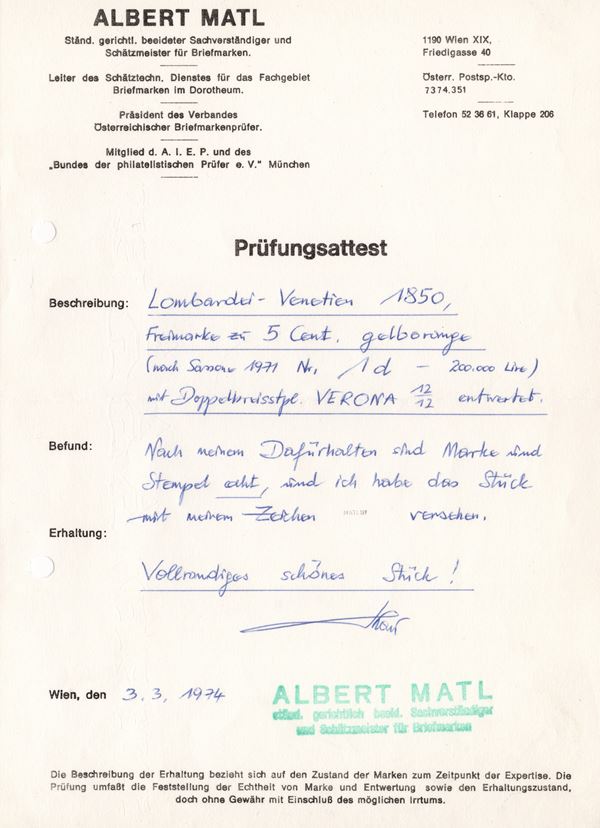 ALBERT MATL
Ständ. gerichtl. beeideter Sachverständiger und
Schätzmeister für Briefmarken.
Leiter des Schätztechn. Dienstes für das Fachgebiet
Briefmarken im Dorotheum.
Präsident des Verbandes
Österreichischer Briefmarkenprüfer.
Mitglied d. A. I. E. P. und des
„Bundes der philatelistischen Prüfer e. V." München
1190 Wien XIX,
Friedlgasse 40
Österr. Postsp.-Kto.
7374.351
Telefon 52 36 61, Klappe 206
Prüfungsattest
Beschreibung: Lombardei - Venetien 1850,
Freimarke zu 5 Cent. gelborange
(nach Sassone 1971 Nr. 1d - 200.000 Lire)
mit Doppelkreisstpl. VERONA 12/12 entwertet.
Befund: Nach meinem Dafürhalten sind Marke und
Stempel echt, und ich habe das Stück
mit meinem Zeichen versehen.
Erhaltung:
Vollrandiges schönes Stück!
Wien, den 3. 3. 1974
ALBERT MATL
ständ. gerichtlich beeid. Sachverständiger
und Schätzmeister für Briefmarken
Die Beschreibung der Erhaltung bezieht sich auf den Zustand der Marken zum Zeitpunkt der Expertise. Die
Prüfung umfaßt die Feststellung der Echtheit von Marke und Entwertung sowie den Erhaltungszustand,
doch ohne Gewähr mit Einschluß des möglichen Irrtums.